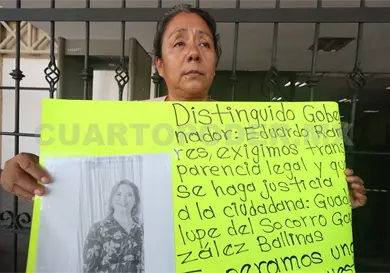 CUARTOPODER.MX
Distinguido Gober
nador: Eduardo Ramí
res, exigimos trans
parencia legal y que
se haga justicia
a la ciudadana: Guada
lupe del Socorro Gon
zález Ballinas
Esperamos una